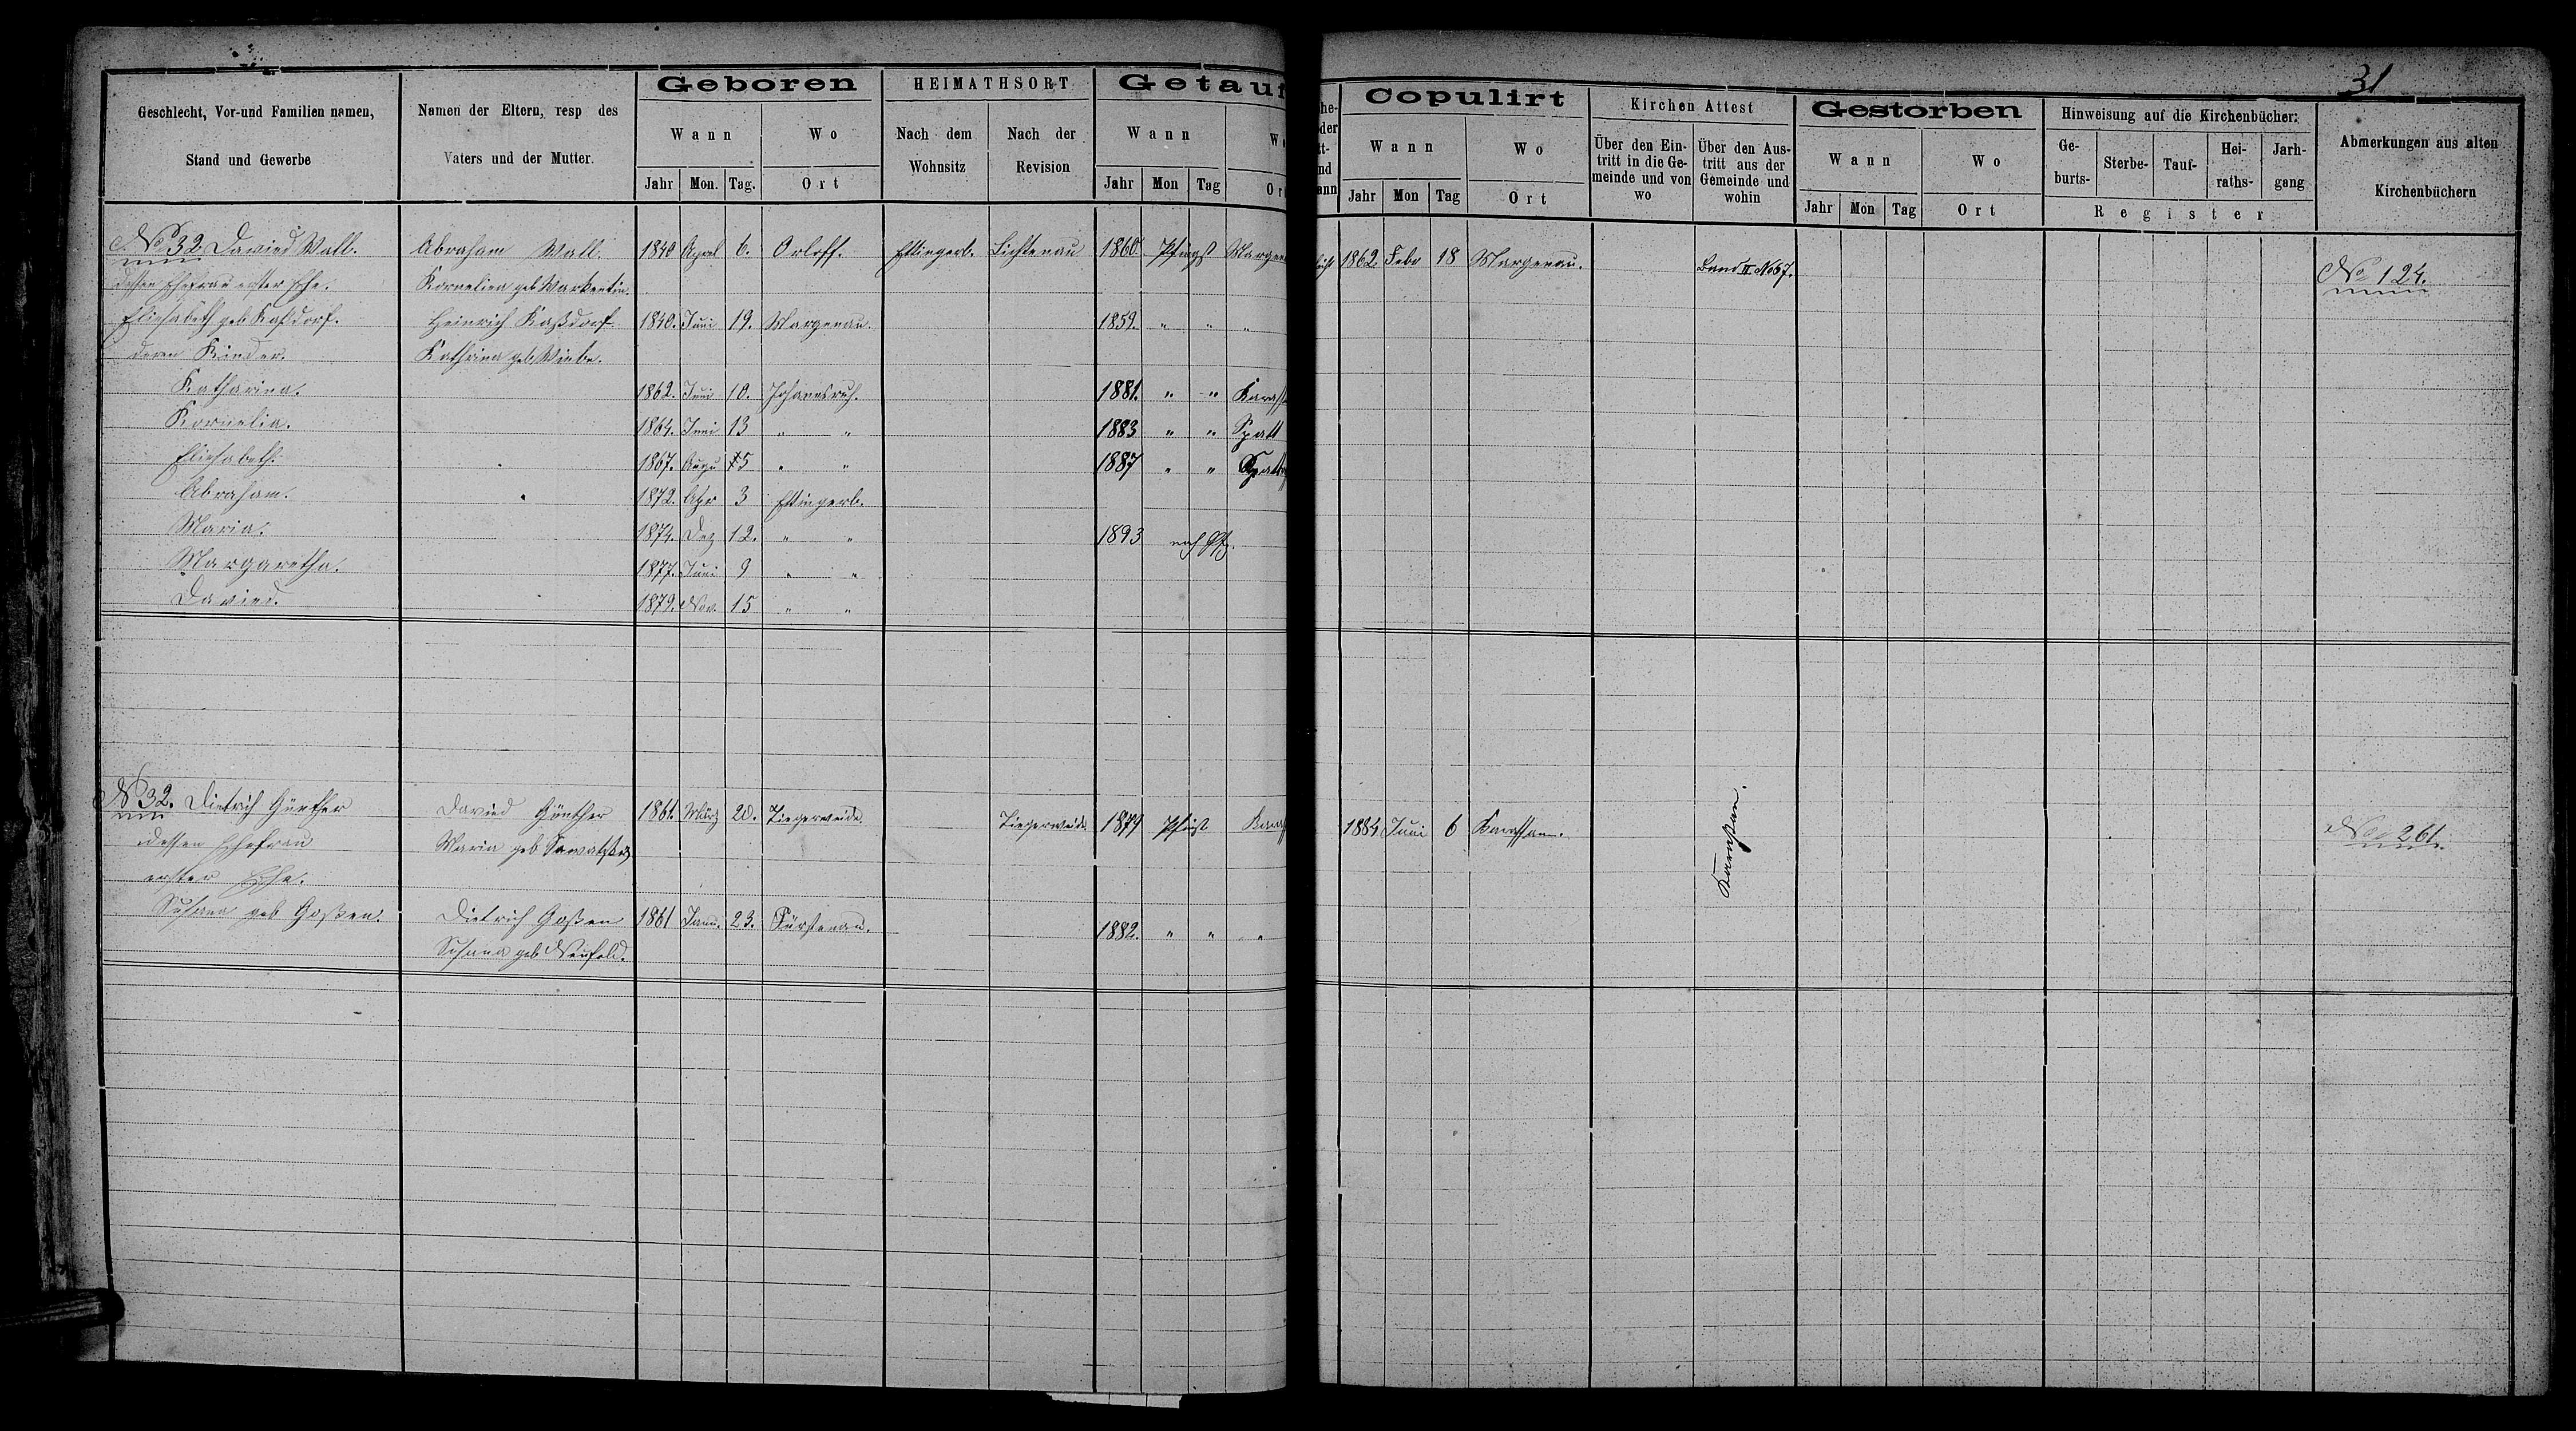 31
Geschlecht, Vor-und Familien namen, Stand und Gewerbe
Namen der Eltern, resp des Vaters und der Mutter.
Geboren
Wann
Wo
Jahr Mon. Tag. Ort
HEIMATHSORT
Nach dem Wohnsitz
Nach der Revision
Getauf
Wann
Jahr Mon Tag
Copulirt
Wann
Wo
Jahr Mon Tag Ort
Kirchen Attest
Über den Eintritt in die Gemeinde und von wo
Über den Austritt aus der Gemeinde und wohin
Gestorben
Wann
Wo
Jahr Mon Tag Ort
Hinweisung auf die Kirchenbücher:
Ge-burts- Sterbe- Tauf- Hei-raths- Jarh-gang
Register
Abmerkungen aus alten Kirchenbüchern
No 32. David Wall. Abraham Wall. 1840 April 6. Orloff. Ettingerb. Lichtenau 1860 Pfingst Margen 1862. Febr 18 Margenau. Band II No 67. No 124.
dessen Ehefrau erster Ehe. Kornelia geb Warkentin.
Eliesabeth geb Kaßdorf. Heinrich Kaßdorf 1840. Juni 19. Margenau. 1859. " " "
deren Kinder. Kathrina geb Wiebe.
Katharina. 1862. Juni 10. Johannsruh. 1881. " "
Kornelia. 1864. Juni 13 " " 1883 " " Spatt
Eliesabeth. 1867. Augu 5 " " 1887 " " Spatt
Abraham. 1872. Apr 3 Ettingerb.
Maria. 1874. Dez 12. " " 1893 nach Pf.
Margaretha. 1877. Juni 9 " "
David. 1879. Nov. 15 " "
No 32. Dietrich Günther David Günther 1861. März 20. Tiegerweide. Tiegerweide 1879 Pfingst 1884 Juni 6 Karassan. Karassan. No 261.
dessen Ehefrau Maria geb Sawatzky
erster Ehe.
Susana geb Goßen. Dietrich Goßen 1861 Janu. 23. Fürstenau. 1882. " " "
Susana geb Neufeld.